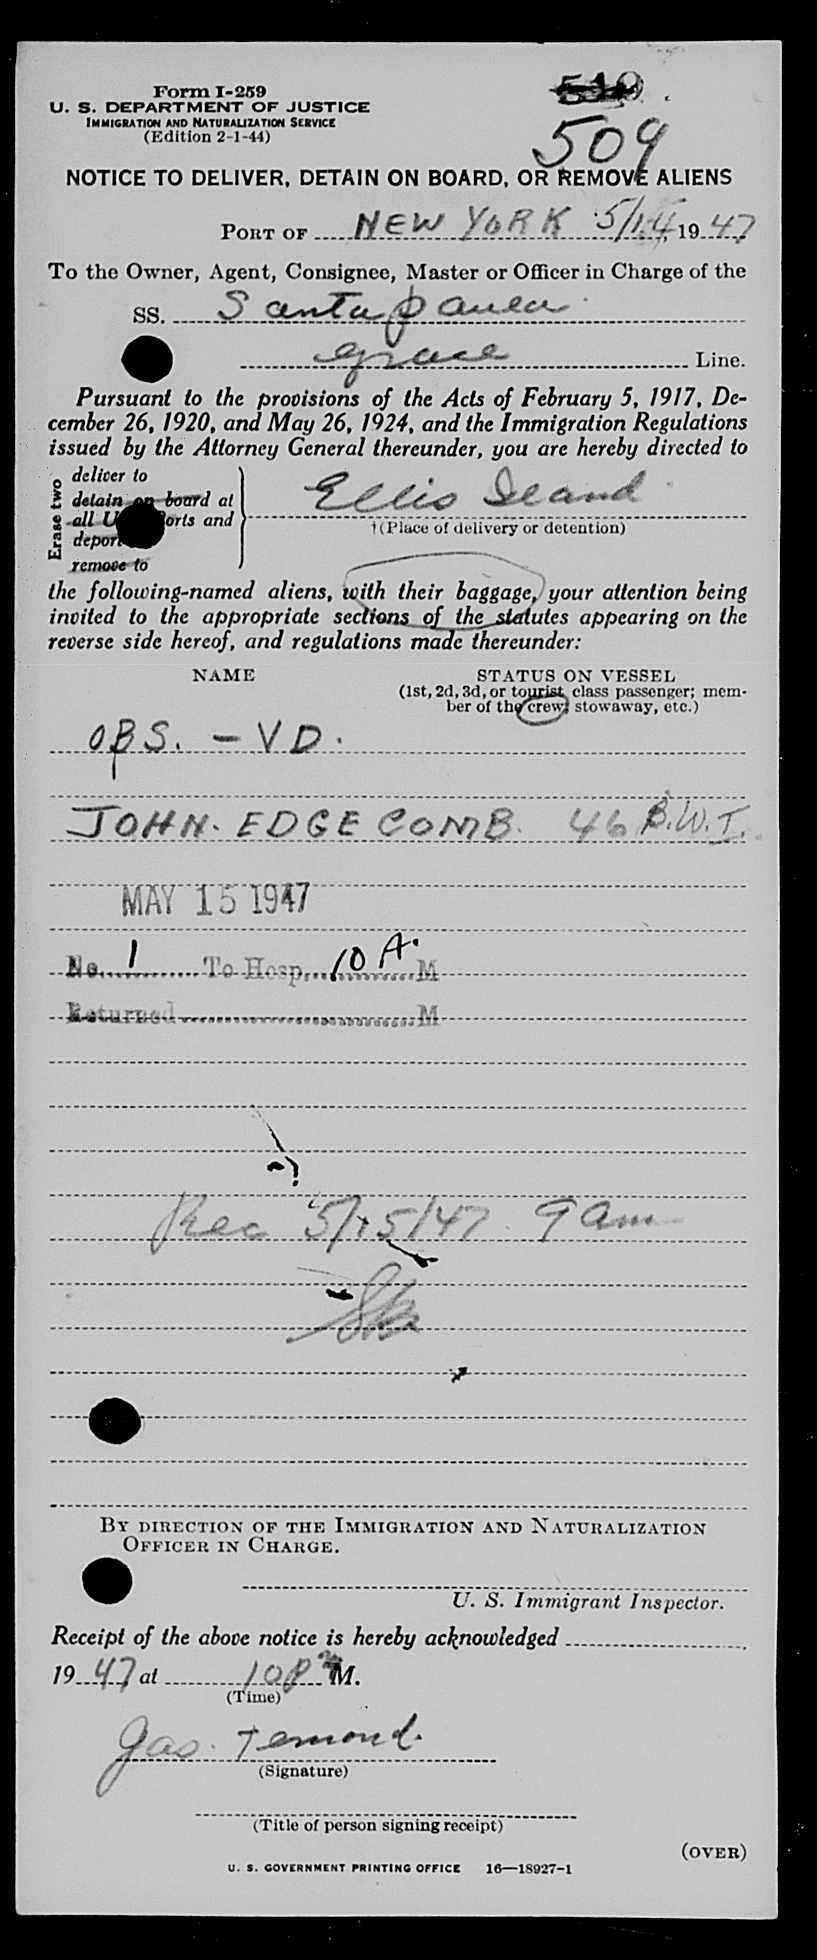 Form I-259
U. S. DEPARTMENT OF JUSTICE
IMMIGRATION AND NATURALIZATION SERVICE
(Edition 2-1-44)
509
NOTICE TO DELIVER, DETAIN ON BOARD, OR REMOVE ALIENS
PORT OF NEW YORK 5/14, 1947
To the Owner, Agent, Consignee, Master or Officer in Charge of the
SS. Santa Paula
Grace Line.
Pursuant to the provisions of the Acts of February 5, 1917, De-
cember 26, 1920, and May 26, 1924, and the Immigration Regulations
issued by the Attorney General thereunder, you are hereby directed to
Erase two
deliver to
detain on board at
all U orts and
deport
remove to
Ellis Island
†(Place of delivery or detention)
the following-named aliens, with their baggage, your attention being
invited to the appropriate sections of the statutes appearing on the
reverse side hereof, and regulations made thereunder:
NAME
STATUS ON VESSEL
(1st, 2d, 3d, or tourist class passenger; mem-
ber of the crew, stowaway, etc.)
OBS. - VD.
JOHN. EDGECOMB. 46 B.W.I.
MAY 15 1947
No. 1 To Hosp. 10 A. M
Returned M
Rec 5/15/47 9 am
BY DIRECTION OF THE IMMIGRATION AND NATURALIZATION
OFFICER IN CHARGE.
U. S. Immigrant Inspector.
Receipt of the above notice is hereby acknowledged
1947 at 10 P M.
(Time)
Jas.
(Signature)
(Title of person signing receipt)
(OVER)
U. S. GOVERNMENT PRINTING OFFICE 16—18927-1